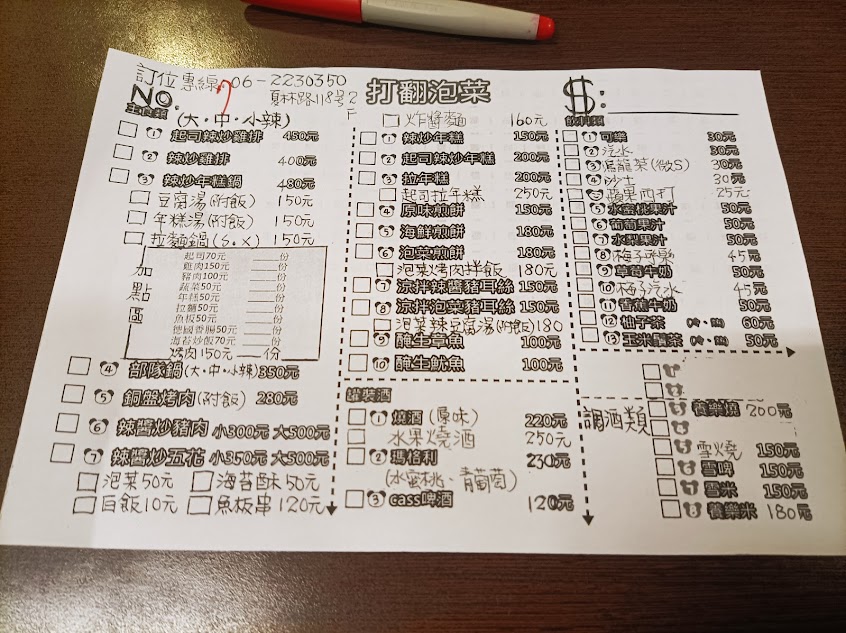 訂位專線 06-2230350
夏林路118号2F
打翻泡菜
NO.
$:
主食類 (大·中·小辣)
① 起司辣炒雞排 450元
② 辣炒雞排 400元
③ 辣炒年糕鍋 480元
豆腐湯(附飯) 150元
年糕湯(附飯) 150元
拉麵鍋(S.X) 150元
加點區
起司70元 份
雞肉150元 份
豬肉100元 份
蔬菜50元 份
年糕50元 份
拉麵50元 份
魚板50元 份
德國香腸50元 份
海苔炒飯70元 份
烤肉150元 份
④ 部隊鍋(大·中·小辣)350元
⑤ 銅盤烤肉(附飯) 280元
⑥ 辣醬炒豬肉 小300元 大500元
⑦ 辣醬炒五花 小350元 大500元
泡菜50元 海苔酥50元
白飯10元 魚板串120元
炸醬麵 160元
① 辣炒年糕 150元
② 起司辣炒年糕 200元
③ 拉年糕 200元
起司拉年糕 250元
④ 原味煎餅 150元
⑤ 海鮮煎餅 180元
⑥ 泡菜煎餅 180元
泡菜烤肉拌飯 180元
⑦ 涼拌辣醬豬耳絲 150元
⑧ 涼拌泡菜豬耳絲 150元
泡菜辣豆腐湯(附飯)180
⑨ 醃生章魚 100元
⑩ 醃生魷魚 100元
罐裝酒
① 燒酒(原味) 220元
水果燒酒 250元
② 瑪格利 230元
(水蜜桃、青葡萄)
③ cass啤酒 120元
飲料類
① 可樂 30元
② 汽水 30元
③ 烏龍茶(微S) 30元
④ 沙士 30元
蘋果西打 25元
⑤ 水蜜桃果汁 50元
⑥ 葡萄果汁 50元
⑦ 水梨果汁 50元
⑧ 45元
⑨ 草莓牛奶 50元
⑩ 梅子汽水 45元
⑪ 香蕉牛奶 50元
⑫ 柚子茶 (冷·熱) 60元
⑬ 玉米鬚茶 (冷·熱) 50元
調酒類
養樂燒 200元
雪燒 150元
雪啤 150元
雪米 150元
養樂米 180元